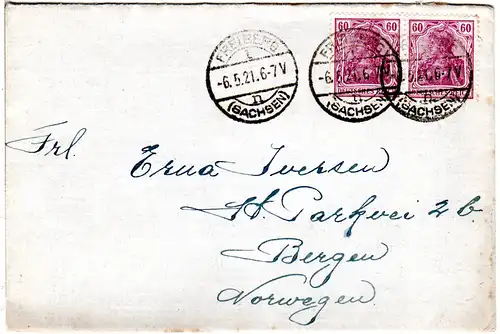 60 60
FREIBERG
1
-6.5.21.6-7V
n
(SACHSEN)
FREIBERG
-6.5.21.6-7V
(SACHSEN)
5.21.6-7V
n
(SACHSEN)
Frl. Erna Iversen
St. Parkvei 2b.
Bergen
Norwegen.